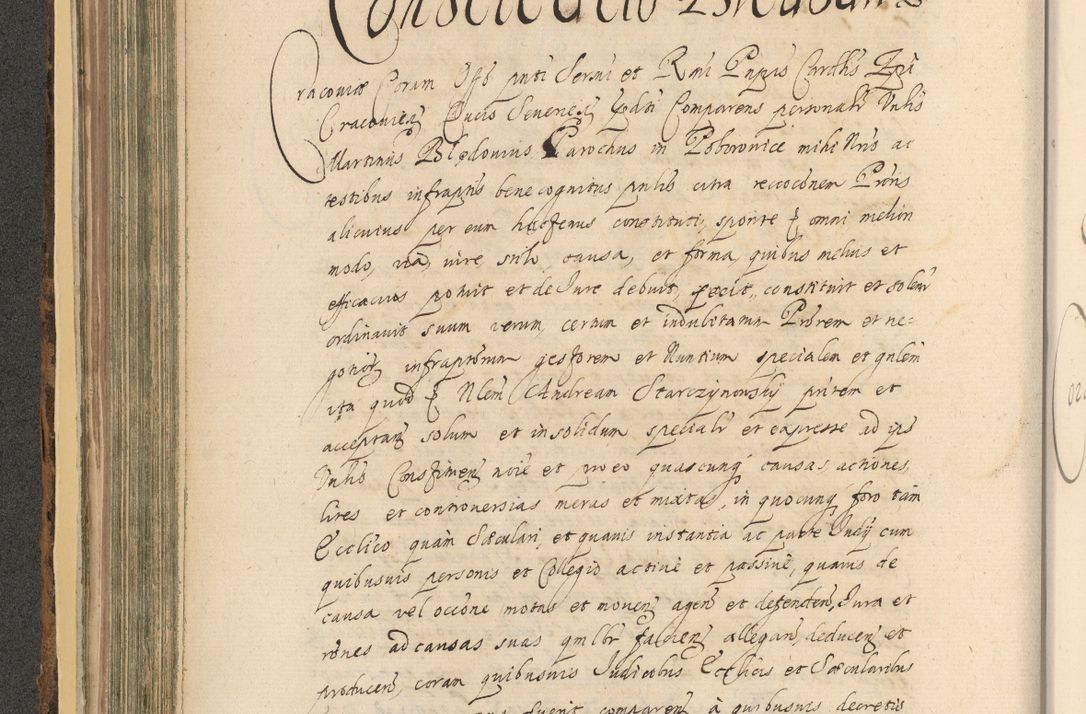 Cracoviæ Coram Offo pnti Sermi et Rmi Pnpis Carolis Epi
Cracovien Ducis Severien Ppditi Comparens personalr Vnlis
Martinus Blędowius Parochus in Poborowice mihi Nrio ac
testibus infraptis bene cognitus pnlis citra reccocõnem Prõris
alicuius per eum hactenus constituti, sponte et omni meliori
modo, via, iure, stilo, causa, et forma, quibus melius et
efficacius potuit et de Iure debuit, fecit, constituit et solenr
ordinavit suum verum, certum et indubitatum Prõrem et ne-
gotior infraptorum gestorem et Nuntium specialem et gnlem
ita quod Nlem Andream Starczynowsky pntem et
acceptan solum et in solidum specialr et expresse ad ips
Vnlis Constituen noie et pro eo quascunq causas, actiones,
lites et controversias meras et mixtas, in quocunq foro tam
Ecclico quam Sæculari, et quavis instantia ac parte Iudij cum
quibusvis personis et Collegio active et passive, quavis de
causa vel occõne motas et moven agen et defenden, Iura et
rônes ad causas suas qmlbt facien allegan, deducen et
producen, coram quibusvis Iudicibus Ecclicis et Sæcularibus
fuerit comparen à quibusvis decretis